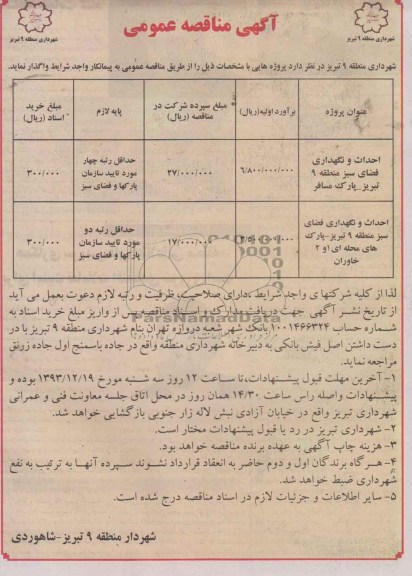 آگهی مناقصه عمومی
شهرداری منطقه ۹ تبریز
شهرداری منطقه ۹ تبریز
شهرداری منطقه ۹ تبریز در نظر دارد پروژه هایی با مشخصات ذیل را از طریق مناقصه عمومی به پیمانکار واجد شرایط واگذار نماید.
عنوان پروژه
برآورد اولیه(ریال)
مبلغ سپرده شرکت در مناقصه (ریال)
پایه لازم
مبلغ خرید اسناد (ریال)
احداث و نگهداری فضای سبز منطقه ۹ تبریز_پارک مسافر
۶/۸۰۰/۰۰۰/۰۰۰
۲۷/۰۰۰/۰۰۰
حداقل رتبه چهار مورد تایید سازمان پارکها و فضای سبز
۳۰۰/۰۰۰
احداث و نگهداری فضای سبز منطقه ۹ تبریز-پارک های محله ای ۱و ۲ خاوران
۱۷/۰۰۰/۰۰۰
حداقل رتبه دو مورد تایید سازمان پارکها و فضای سبز
۳۰۰/۰۰۰
ParsNamadData
لذا از کلیه شرکتهای واجد شرایط ،دارای صلاحیت، ظرفیت و رتبه لازم دعوت بعمل می آید
از تاریخ نشر آگهی جهت دریافت مدارک و اسناد مناقصه پس از واریز مبلغ خرید اسناد به
شماره حساب ۱۰۰۱۴۶۶۳۲۴ بانک شهر شعبه دروازه تهران بنام شهرداری منطقه ۹ تبریز با در
دست داشتن اصل فیش بانکی به دبیرخانه شهرداری منطقه ۹ واقع در جاده باسمنج اول جاده زرنق
مراجعه نماید.
۱- آخرین مهلت قبول پیشنهادات،تا ساعت ۱۲ روز سه شنبه مورخ ۱۳۹۳/۱۲/۱۹ بوده و
پیشنهادات واصله راس ساعت ۱۴/۳۰ همان روز در محل اتاق جلسه معاونت فنی و عمرانی
شهرداری تبریز واقع در خیابان آزادی نبش لاله زار جنوبی بازگشایی خواهد شد.
۲- شهرداری تبریز در رد یا قبول پیشنهادات مختار است.
۳- هزینه چاپ آگهی به عهده برنده مناقصه خواهد بود.
۴- هرگاه برندگان اول و دوم حاضر به انعقاد قرارداد نشوند سپرده آنها به ترتیب به نفع
شهرداری ضبط خواهد شد.
۵- سایر اطلاعات و جزئیات لازم در اسناد مناقصه درج شده است.
شهردار منطقه ۹ تبریز-شاهوردی